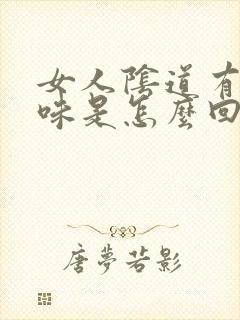 女人陰道有
味是怎麼回
唐夢若影